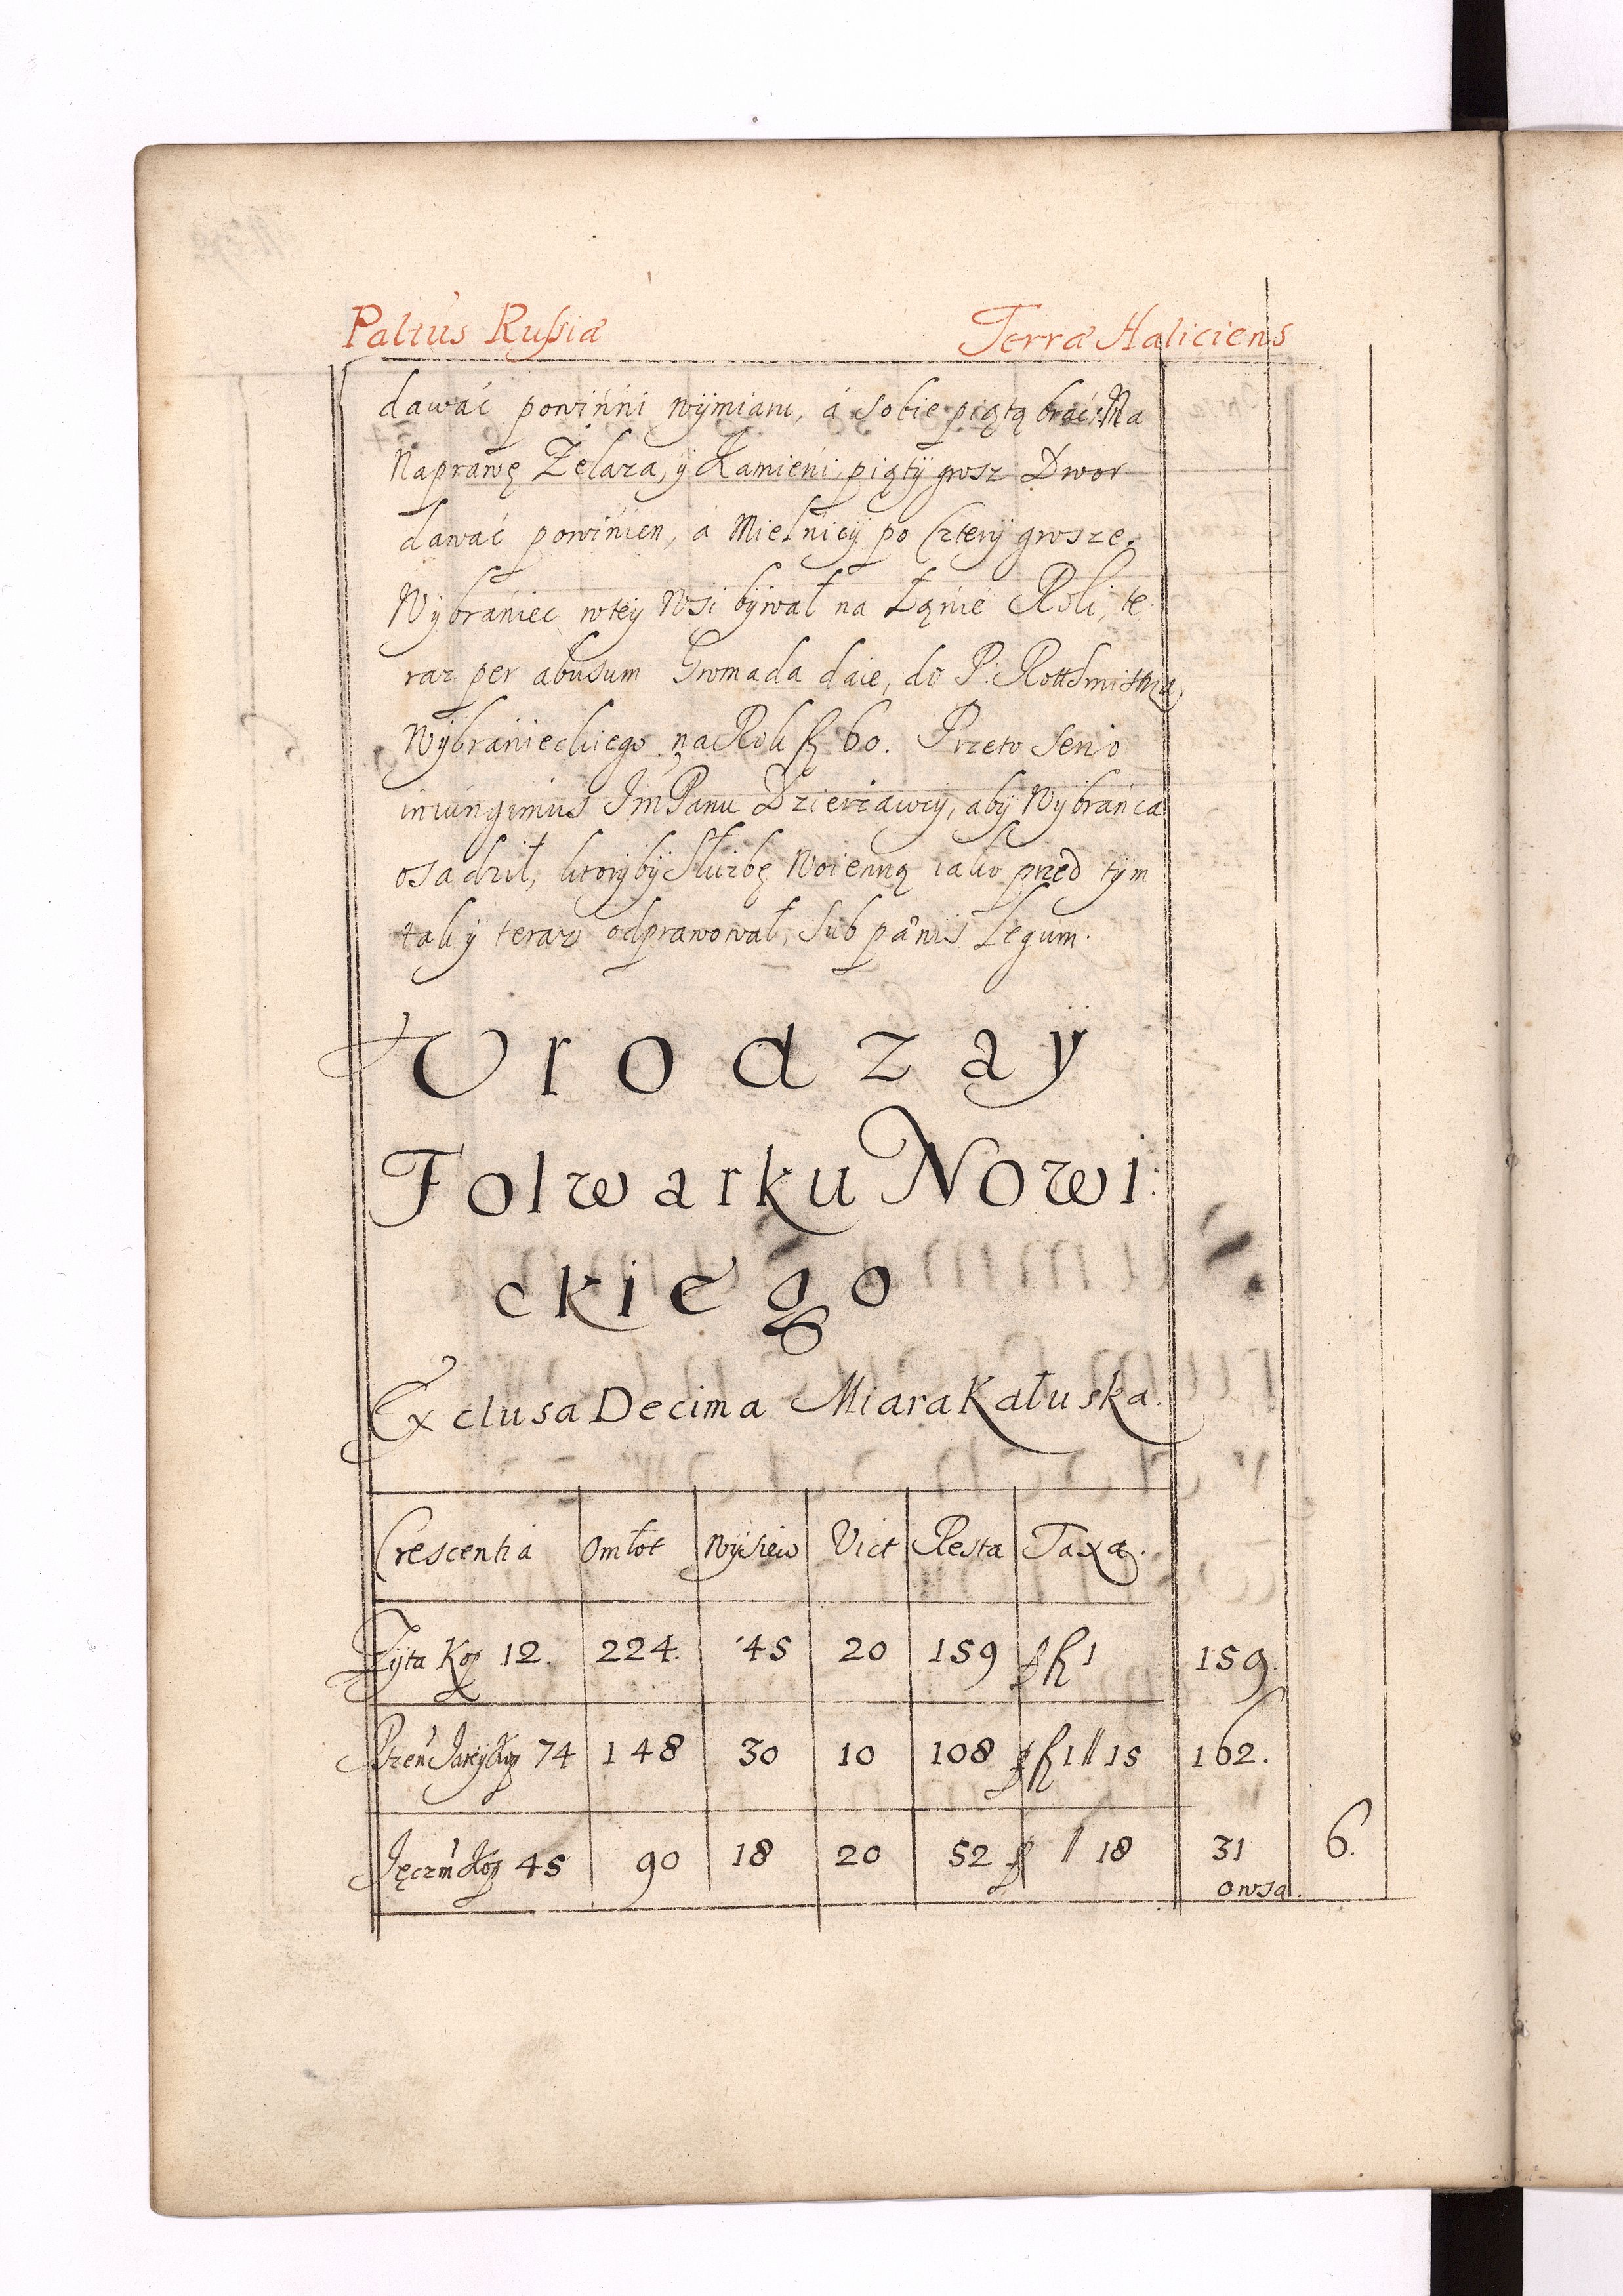 Paltus Rußiæ Terræ Haliciens
dawać powinni wymiaru, á sobie piątą brać. Na
Naprawę Zelaza, ÿ Kamieni, piątÿ grosz Dwor
dawać powinien, á Mielnicÿ po Czterÿ grosze.
Wÿbraniec wteÿ Wsi bÿwał na Łąnie Roli, te
raz per abusum Gromada daie, do P: Rotthmistrza
Wÿbranieckiego na Rok fl 60. Przeto serio
iniungimus JmPanu Dzierzawcÿ, abÿ Wÿbrańca
osadził, ktorÿbÿ Służbę Woienną iako przed tÿm
tak ÿ teraz odprawował, sub pænis Legum.
Vrodzaÿ
Folwarku Nowi:
ckiego
Exclusa Decima Miara Kałuska.
Crescentia Omłot Wÿsiew Vict Resta Taxa.
Zÿta Kop 12. 224. 45 20 159 p fl 1 159.
Pszen Jareÿ Kop 74 148 30 10 108 p fl 1 // 15 162.
Jęczm Kop 45 90 18 20 52 p // 18 31 6.
owsa.